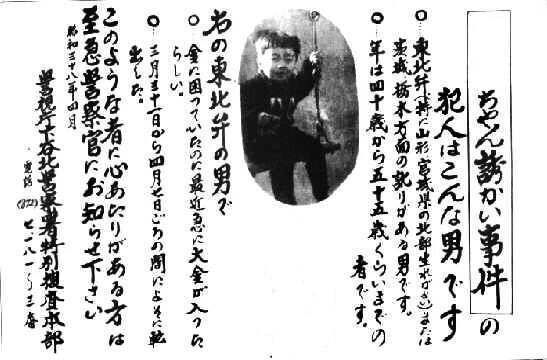 ちゃん誘かい事件の
犯人はこんな男です
○…東北弁(特に山形宮城県の北部生れ または
茨城、栃木方面の訛りがある男です。
○…年は四十歳から五十五歳くらいまでの
者です。
右の東北弁の男で
○…金に困っていたのに最近急に大金が入った
らしい。
○…三月三十一日から四月七日ごろの間によそに転
出した。
このような者に心あたりがある方は
至急警察官にお知らせ下さい
昭和三十八年四月
警視庁下谷北警察署特別捜査本部
電話(872)